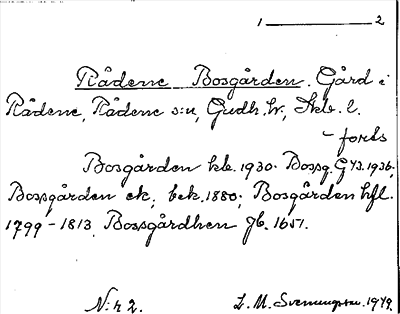 1 ——— 2
Rådene Bosgården. Gård i
Rådene, Rådene s:n, Gudh. hr, Skb. l.
– forts
Bosgården kb. 1930. Bossg. G 43. 1936.
Bossgården ek, bek. 1880; Bosgården hfl.
1799–1813, Bossgårdhen Jb. 1651.
N:r 2. L. M. Svenungsson. 1949.